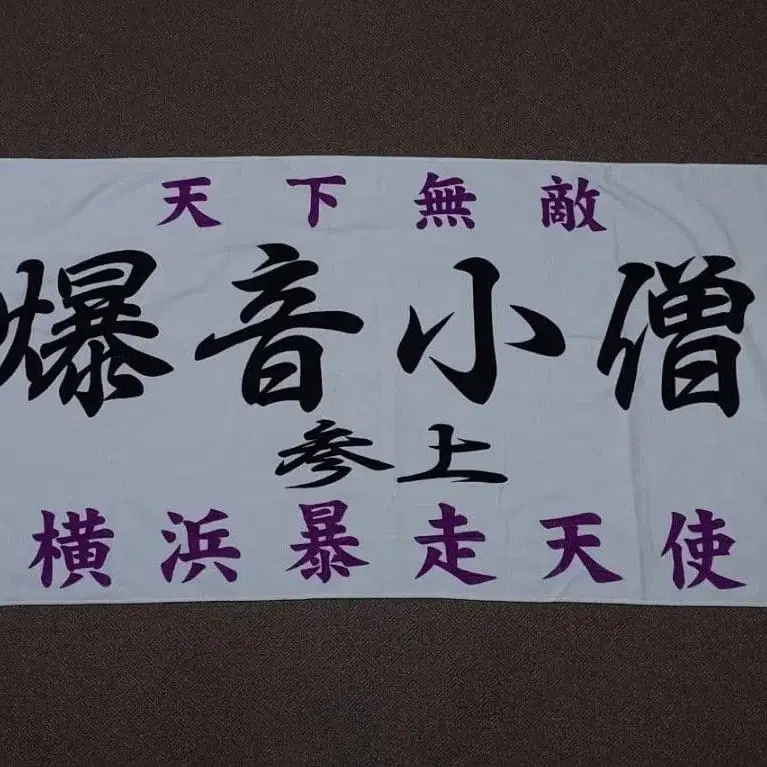 天下無敵
爆音小僧
参上
横浜暴走天使